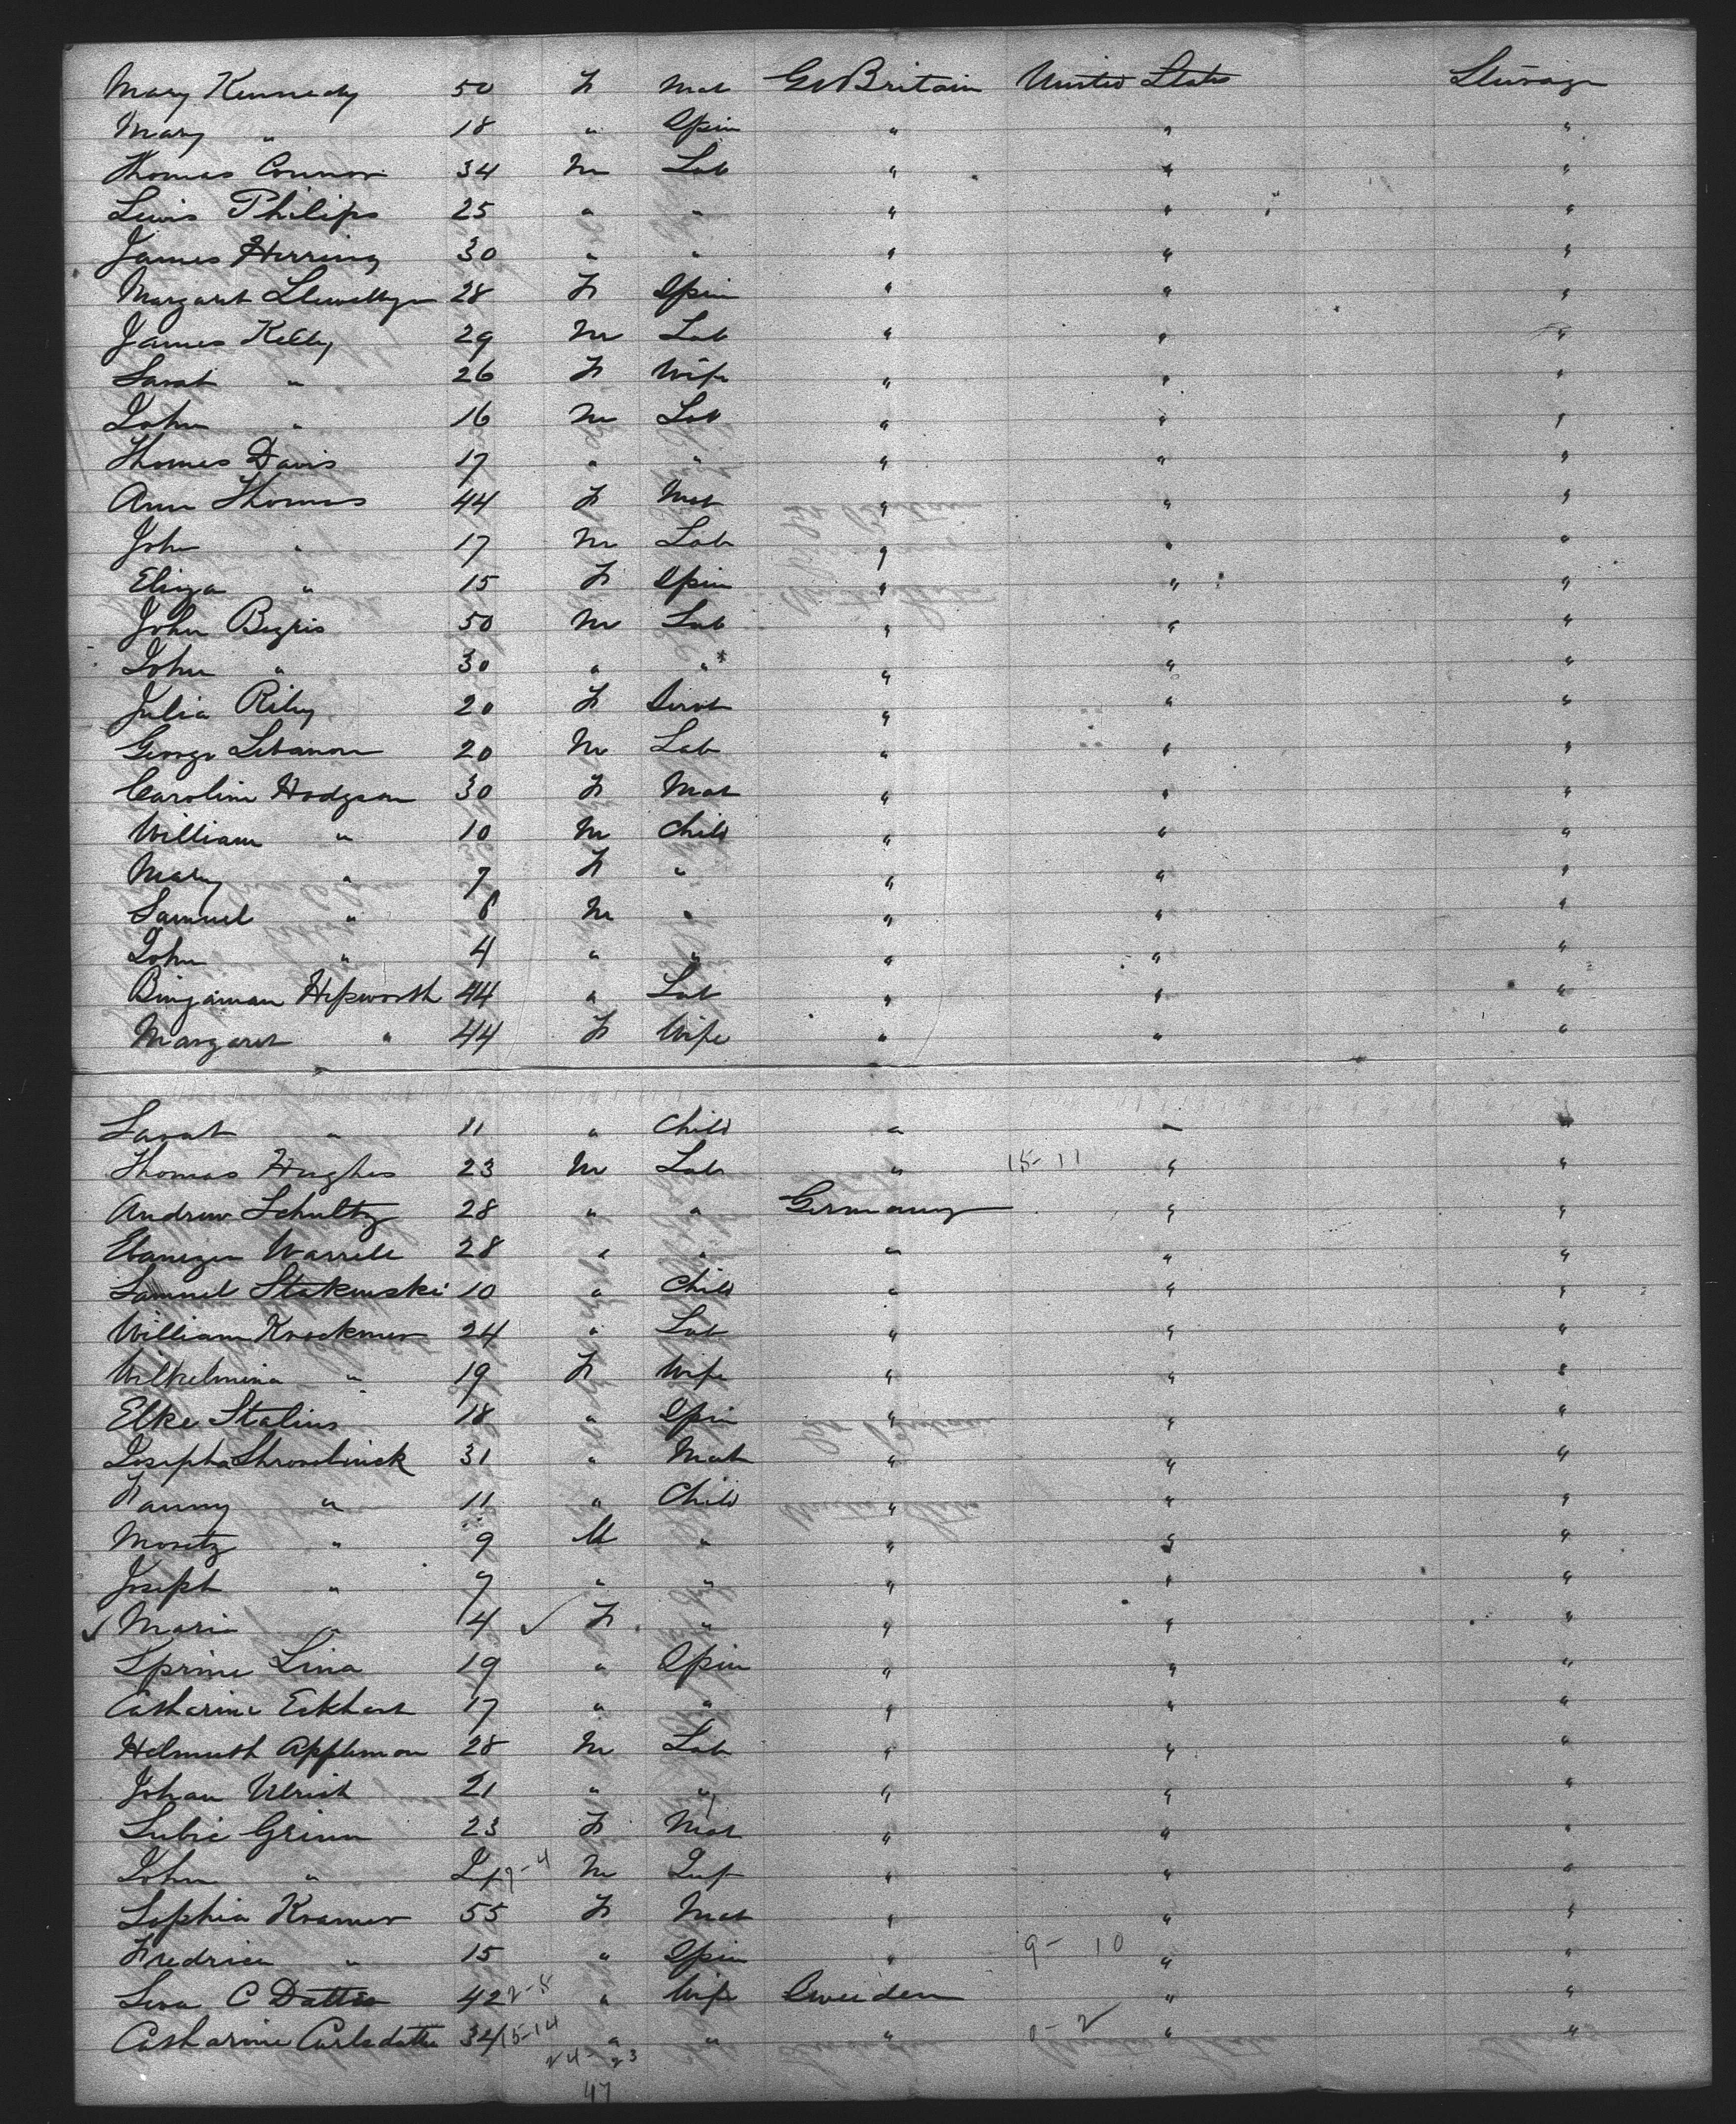 Mary Kennedy 50 F Mat Gt Britain United States Steerage
Mary " 18 " Spin " " "
Thomas Connor 34 M Lab " " "
Lewis Philips 25 " " " " "
James Herring 30 " " " " "
Margaret Llewellyn 28 F Spin " " "
James Kelly 29 M Lab " " "
Sarah " 26 F Wife " " "
John " 16 M Lab " " "
Thomas Davis 17 " " " " "
Ann Thomas 44 F Mat " " "
John " 17 M Lab " " "
Eliza " 15 F Spin " " "
John 50 M Lab " " "
John " 30 " " " " "
Julia Riley 20 F Servt " " "
George Lebanon 20 M Lab " " "
Caroline Hodgson 30 F Mat " " "
William " 10 M Child " " "
Mary " 7 F " " " "
Samuel " 6 M " " " "
John " 4 " " " " "
Bingaman Hepworth 44 " Lab " " "
Margaret " 44 F Wife " " "
Sarah " 11 " Child " " "
Thomas Hughes 23 M Lab " 15-11 " "
Andrew Schultz 28 " " Germany " "
Ebanezer Warrele 28 " " " " "
Samuel Stakowski 10 " Child " " "
William Krockmer 24 " Lab " " "
Wilhelmina " 19 F Wife " " "
Elke Stalius 18 " Spin " " "
Josepha 31 " Mat " " "
Fanny " 11 " Child " " "
Moritz " 9 M " " " "
Joseph " 7 " " " " "
✓ Maria " 4 ✓ F " " " "
Sprine Lina 19 " Spin " " "
Catharine Eckhart 17 " " " " "
Helmuth Appleman 28 M Lab " " "
Johan Ulrich 21 " " " " "
Lubie Grinn 23 F Mat " " "
John " M Inf " " "
Sophia Kramer 55 F Mat " " "
Fredrica " 15 " Spin " 9-10 " "
C Datter 42 2-8 " Wife Sweiden " "
Catharine Carlsdatter 34 15-14 " " " 0-2 " "
24-23
47